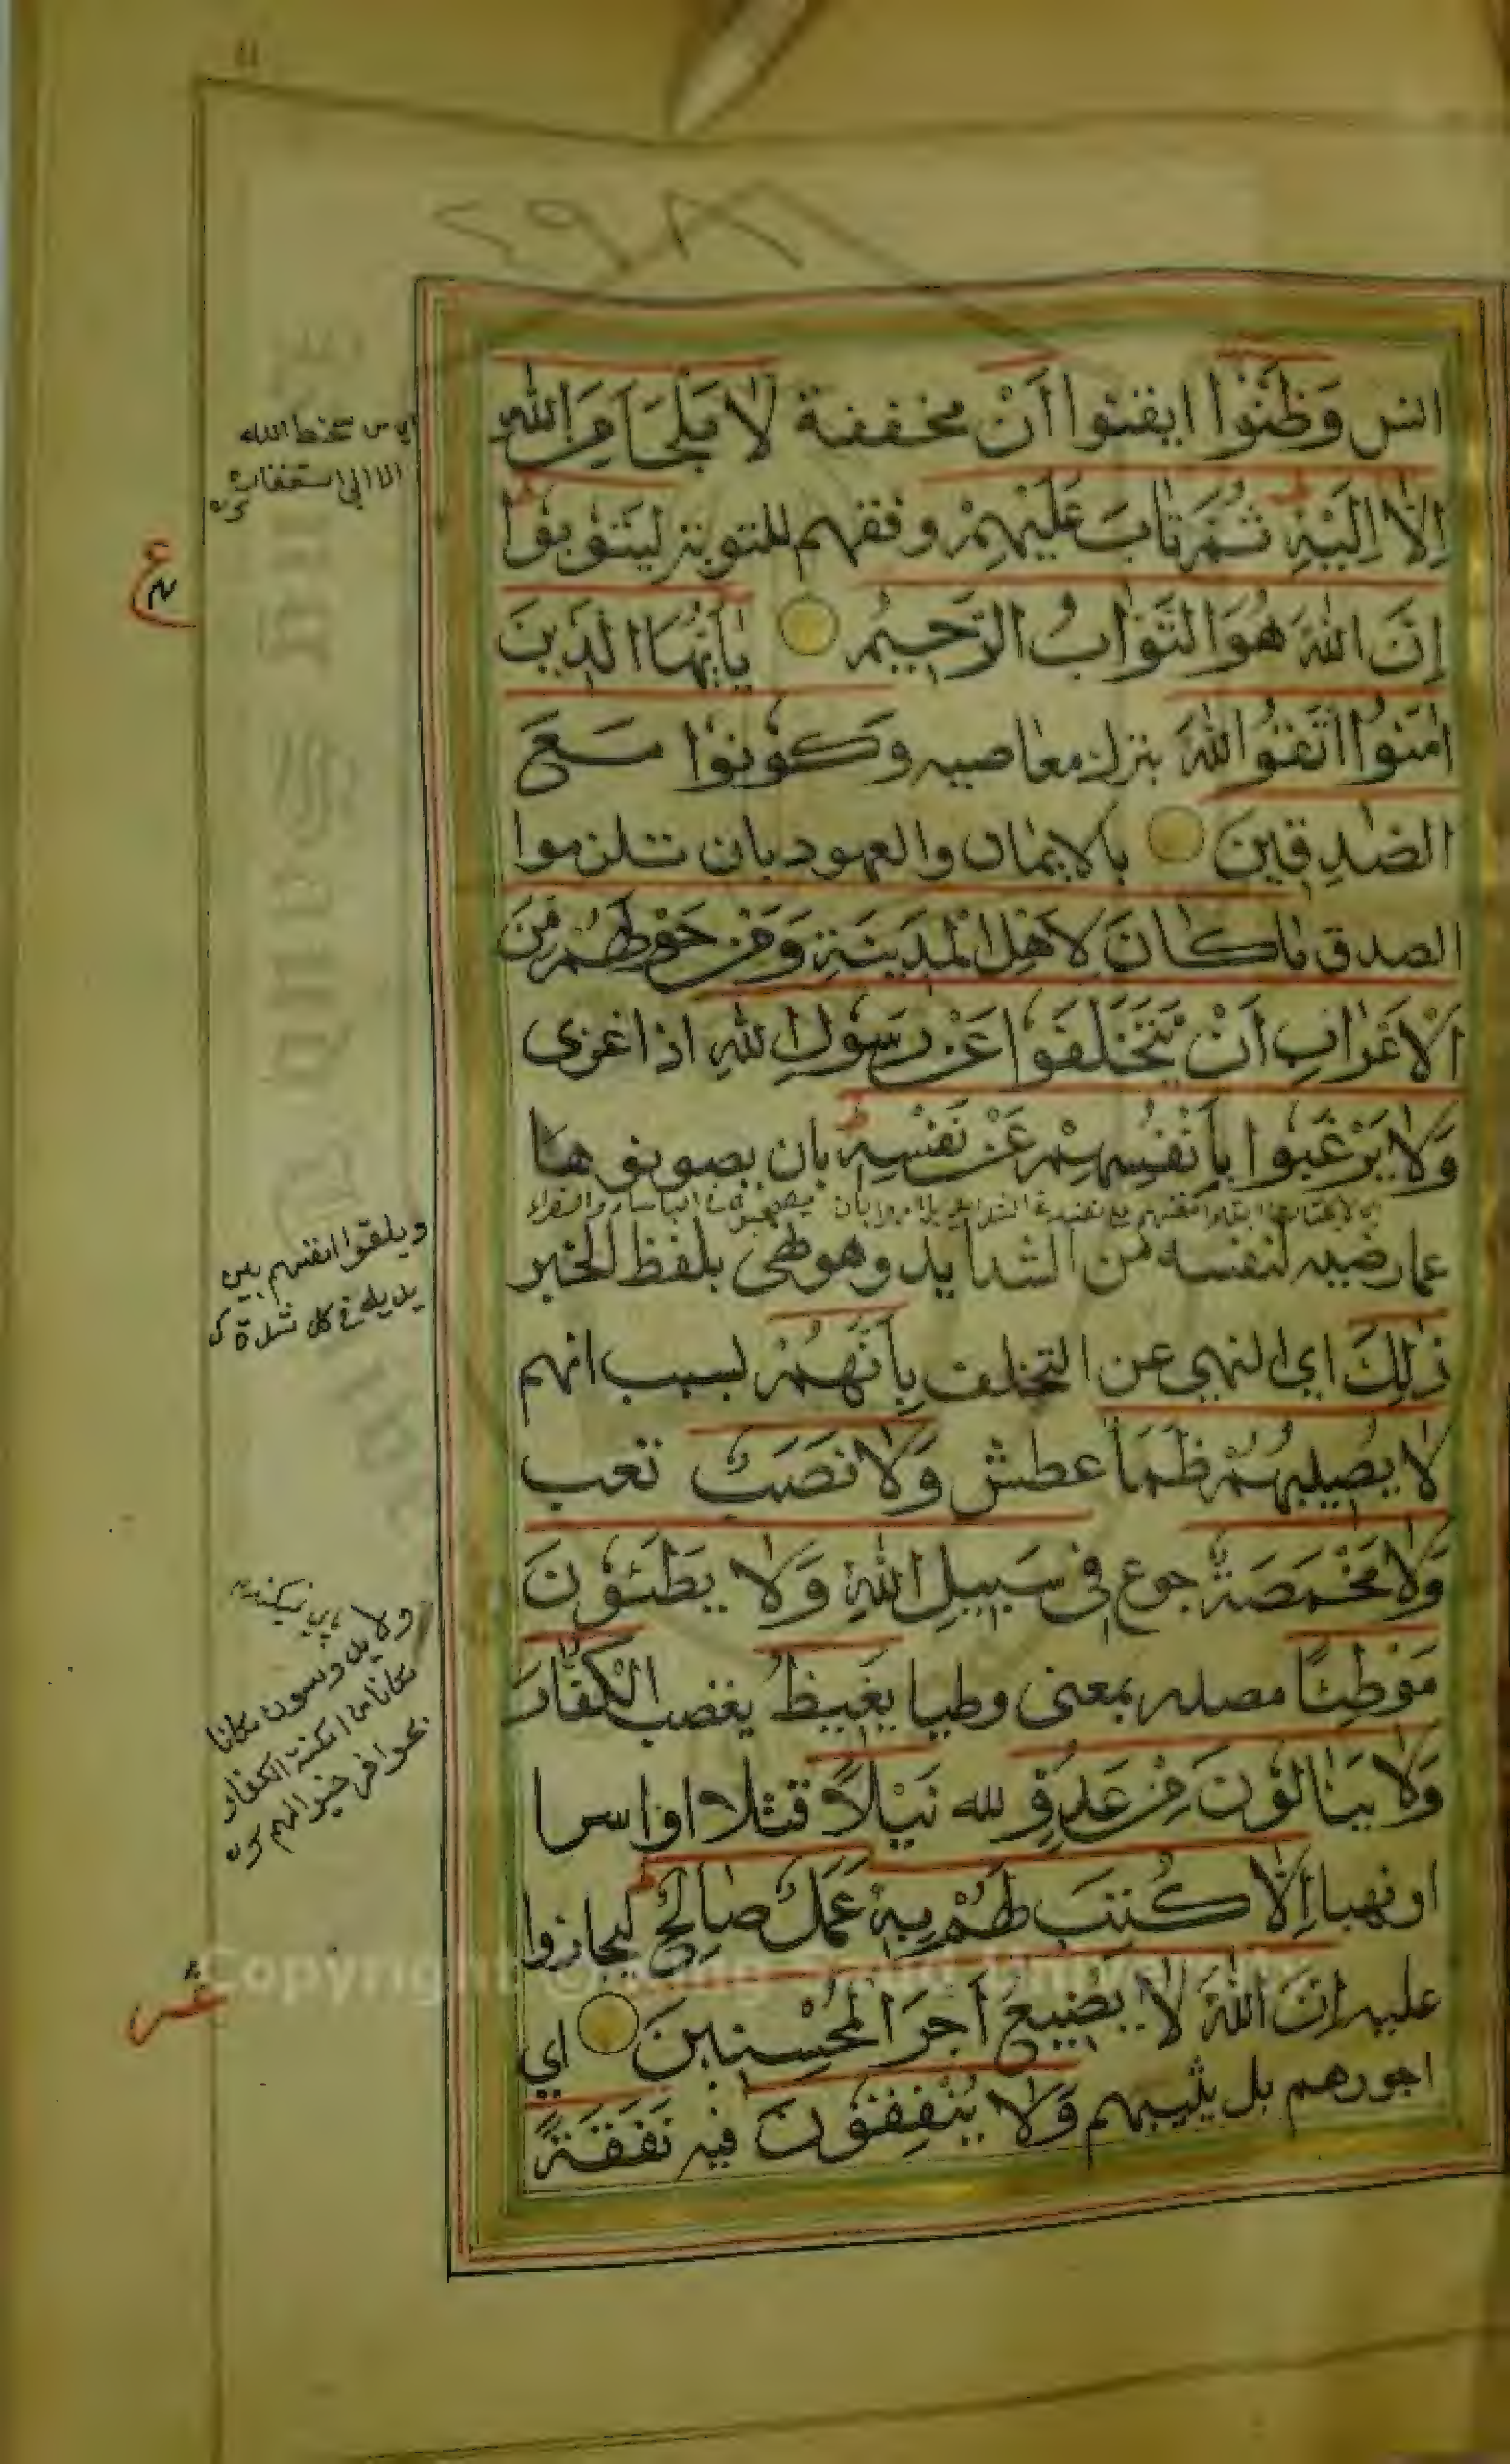 انس وَظَنُّوا ايقنوا أَنْ مخففة لَا مَلْجَأَ مِنَ اللهِ
إِلَّا إِلَيْهِ ثُمَّ تَابَ عَلَيْهِمْ وفقهم للتوبة لِيَتُوبُوا
إِنَّ اللهَ هُوَ التَّوَّابُ الرَّحِيمُ يٰأَيُّهَا الَّذِينَ
اٰمَنُوا اتَّقُوا اللهَ بترك معاصيه وَكُونُوا مَعَ
الصّٰدِقِينَ بالايمان والعهود بان تلزموا
الصدق مَا كَانَ لِأَهْلِ الْمَدِينَةِ وَمَنْ حَوْلَهُمْ مِنَ
الْأَعْرَابِ أَنْ يَتَخَلَّفُوا عَنْ رَسُولِ اللهِ اذا غزى
وَلَا يَرْغَبُوا بِأَنْفُسِهِمْ عَنْ نَفْسِهِ بان يصونوها
عما رضيه لنفسه من الشدايد وهو نهى بلفظ الخبر
ذٰلِكَ اي النهي عن التخلف بِأَنَّهُمْ بسبب انهم
لَا يُصِيبُهُمْ ظَمَأٌ عطش وَلَا نَصَبٌ تعب
وَلَا مَخْمَصَةٌ جوع فِي سَبِيلِ اللهِ وَلَا يَطَئُونَ
مَوْطِئًا مصدر بمعنى وطيا يَغِيظُ يغضب الْكُفَّارَ
وَلَا يَنَالُونَ مِنْ عَدُوٍّ لله نَيْلًا قتلا او اسرا
او نهبا إِلَّا كُتِبَ لَهُمْ بِهِ عَمَلٌ صَالِحٌ ليجازوا
عليه إِنَّ اللهَ لَا يُضِيعُ أَجْرَ الْمُحْسِنِينَ اي
اجورهم بل يثيبهم وَلَا يُنْفِقُونَ فيه نَفَقَةً
اي من سخط الله
الا الى استغفاره
ع
ويلقوا انفسهم بين
يديه في كل شدة
ولا يدوسون مكانا
مكانا من امكنة الكفار
بحوافر خيولهم
Copyright © King Saud University